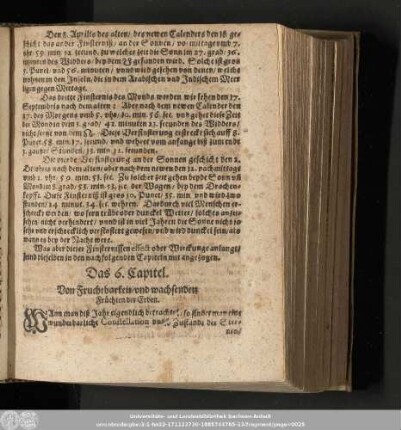 Den 8. Aprilis des alten/ des newen Calenders den 18. ge-
schicht das ander Finsternuß/ an der Sonnen/ vormittage umb 7.
vhr. 59. min. 12. secund. zu welcher zeit die Sonn im 27. grad/ 36.
minuten des Widders/ beydem ☊ gefunden wird. Solche ist groß
5. Punct/ und 56. minuten/ vnnd wird gesehen von denen/ welche
wohnen in den Inseln/ die in dem Arabischen und Indischen Meer
ligen gegen Mittage.
Das dritte Finsternis des Monds werden wir sehen den 17.
Septembris nach dem alten: Aber nach dem newen Calender den
27. des Morgens umb 5. vhr/ 10. min. 56. sec. vnd gehet diese Zeit
im Widders/
nicht ferne von dem ☊. Diese Verfinsterung erstrecket sich auff 8.
Punct 58. min. 17. secund. und wehret vom anfange biß zum ende
3. gantze/ Stunden/ 15. min. 32. secunden.
Die vierde Verfinsterung an der Sonnen geschicht den 2.
Octobris nach dem alten/ aber nach dem newen den 12. vormittags
umb 1. vhr/ 50. min. 53. sec. Zu solcher zeit gehen beyde Sonn und
Mond im 8. grad/ 55. min. 23. sec. der Wagen/ bey dem Drachen-
kopff. Diese Finsternuß ist gros 10. Punct/ 55. min. vnd wird zwo
stunden/ 24. minut. 54. sec. wehren. Dardurch viel Menschen er-
schreckt werden/ wo fern trübe oder dunckel Wetter/ solches anzu-
sehen/ nicht verhindert/ vnnd ist in viel Jahren die Sonne nicht so
sehr und erschrecklich verfinstert gewesen/ vnd wird dunckel sein/ als
wann es bey der Nacht were.
Was aber dieser Finsternissen effect oder Wirckunge anlangt/
sind dieselben in den nachfolgenden Capiteln mit angezogen.
Das 6. Capitel.
Von Fruchtbarkeit/ vnd wachsenden
Früchten der Erden.
WAnn man diß Jahr eigendlich betrachtet/ so findet man eine
wunderbarliche Constellation vnd Zustande der Ster-
nen/
Universitäts- und Landesbibliothek Sachsen-Anhalt
urn:nbn:de:gbv:3:1-